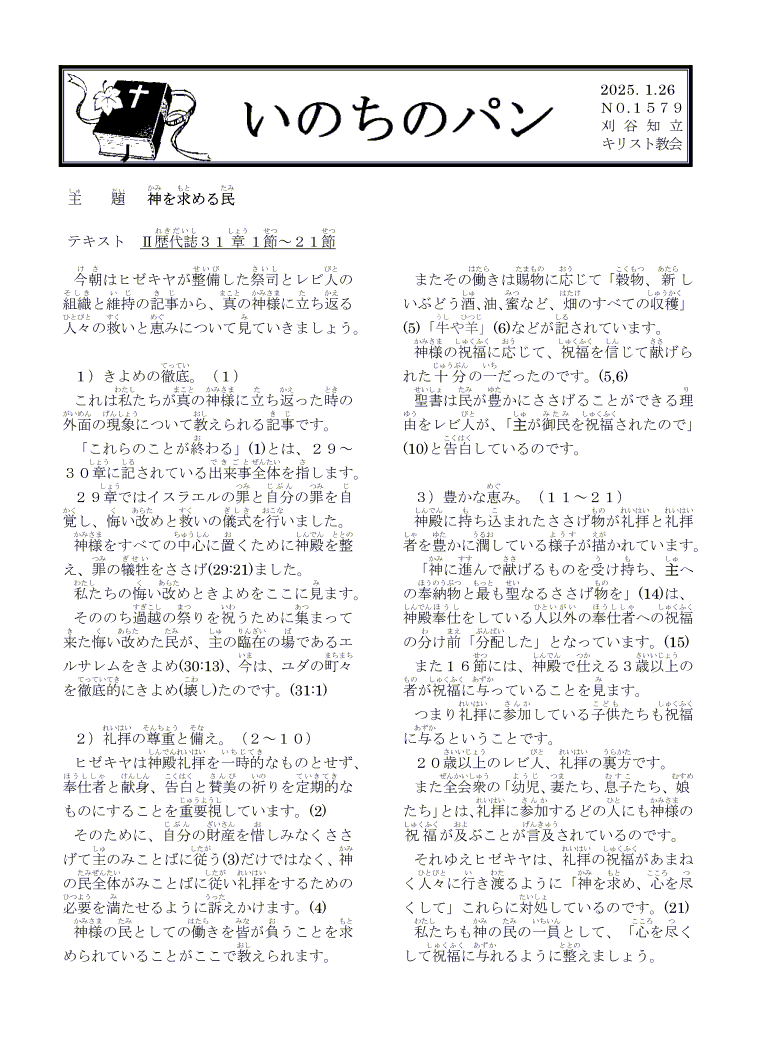 いのちのパン
2025. 1.26
ＮＯ.１５７９
刈 谷 知 立
キリスト教会
主　題　神を求める民
テキスト　Ⅱ歴代誌３１章１節～２１節
今朝はヒゼキヤが整備した祭司とレビ人の
組織と維持の記事から、真の神様に立ち返る
人々の救いと恵みについて見ていきましょう。
１）きよめの徹底。（１）
これは私たちが真の神様に立ち返った時の
外面の現象について教えられる記事です。
「これらのことが終わる」(1)とは、２９～
３０章に記されている出来事全体を指します。
２９章ではイスラエルの罪と自分の罪を自
覚し、悔い改めと救いの儀式を行いました。
神様をすべての中心に置くために神殿を整
え、罪の犠牲をささげ(29:21)ました。
私たちの悔い改めときよめをここに見ます。
そののち過越の祭りを祝うために集まって
来た悔い改めた民が、主の臨在の場であるエ
ルサレムをきよめ(30:13)、今は、ユダの町々
を徹底的にきよめ(壊し)たのです。(31:1)
２）礼拝の尊重と備え。（２～１０）
ヒゼキヤは神殿礼拝を一時的なものとせず、
奉仕者と献身、告白と賛美の祈りを定期的な
ものにすることを重要視しています。(2)
そのために、自分の財産を惜しみなくささ
げて主のみことばに従う(3)だけではなく、神
の民全体がみことばに従い礼拝をするための
必要を満たせるように訴えかけます。(4)
神様の民としての働きを皆が負うことを求
められていることがここで教えられます。
またその働きは賜物に応じて「穀物、新し
いぶどう酒、油、蜜など、畑のすべての収穫」
(5)「牛や羊」(6)などが記されています。
神様の祝福に応じて、祝福を信じて献げら
れた十分の一だったのです。(5,6)
聖書は民が豊かにささげることができる理
由をレビ人が、「主が御民を祝福されたので」
(10)と告白しているのです。
３）豊かな恵み。（１１～２１）
神殿に持ち込まれたささげ物が礼拝と礼拝
者を豊かに潤している様子が描かれています。
「神に進んで献げるものを受け持ち、主へ
の奉納物と最も聖なるささげ物を」(14)は、
神殿奉仕をしている人以外の奉仕者への祝福
の分け前「分配した」となっています。(15)
また１６節には、神殿で仕える３歳以上の
者が祝福に与っていることを見ます。
つまり礼拝に参加している子供たちも祝福
に与るということです。
２０歳以上のレビ人、礼拝の裏方です。
また全会衆の「幼児、妻たち、息子たち、娘
たち」とは、礼拝に参加するどの人にも神様の
祝福が及ぶことが言及されているのです。
それゆえヒゼキヤは、礼拝の祝福があまね
く人々に行き渡るように「神を求め、心を尽
くして」これらに対処しているのです。(21)
私たちも神の民の一員として、「心を尽く
して祝福に与れるように整えましょう。